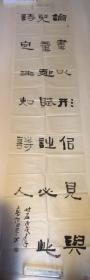 論畫以形佀見與
兒童鄰賦詩必此
詩定非知詩人